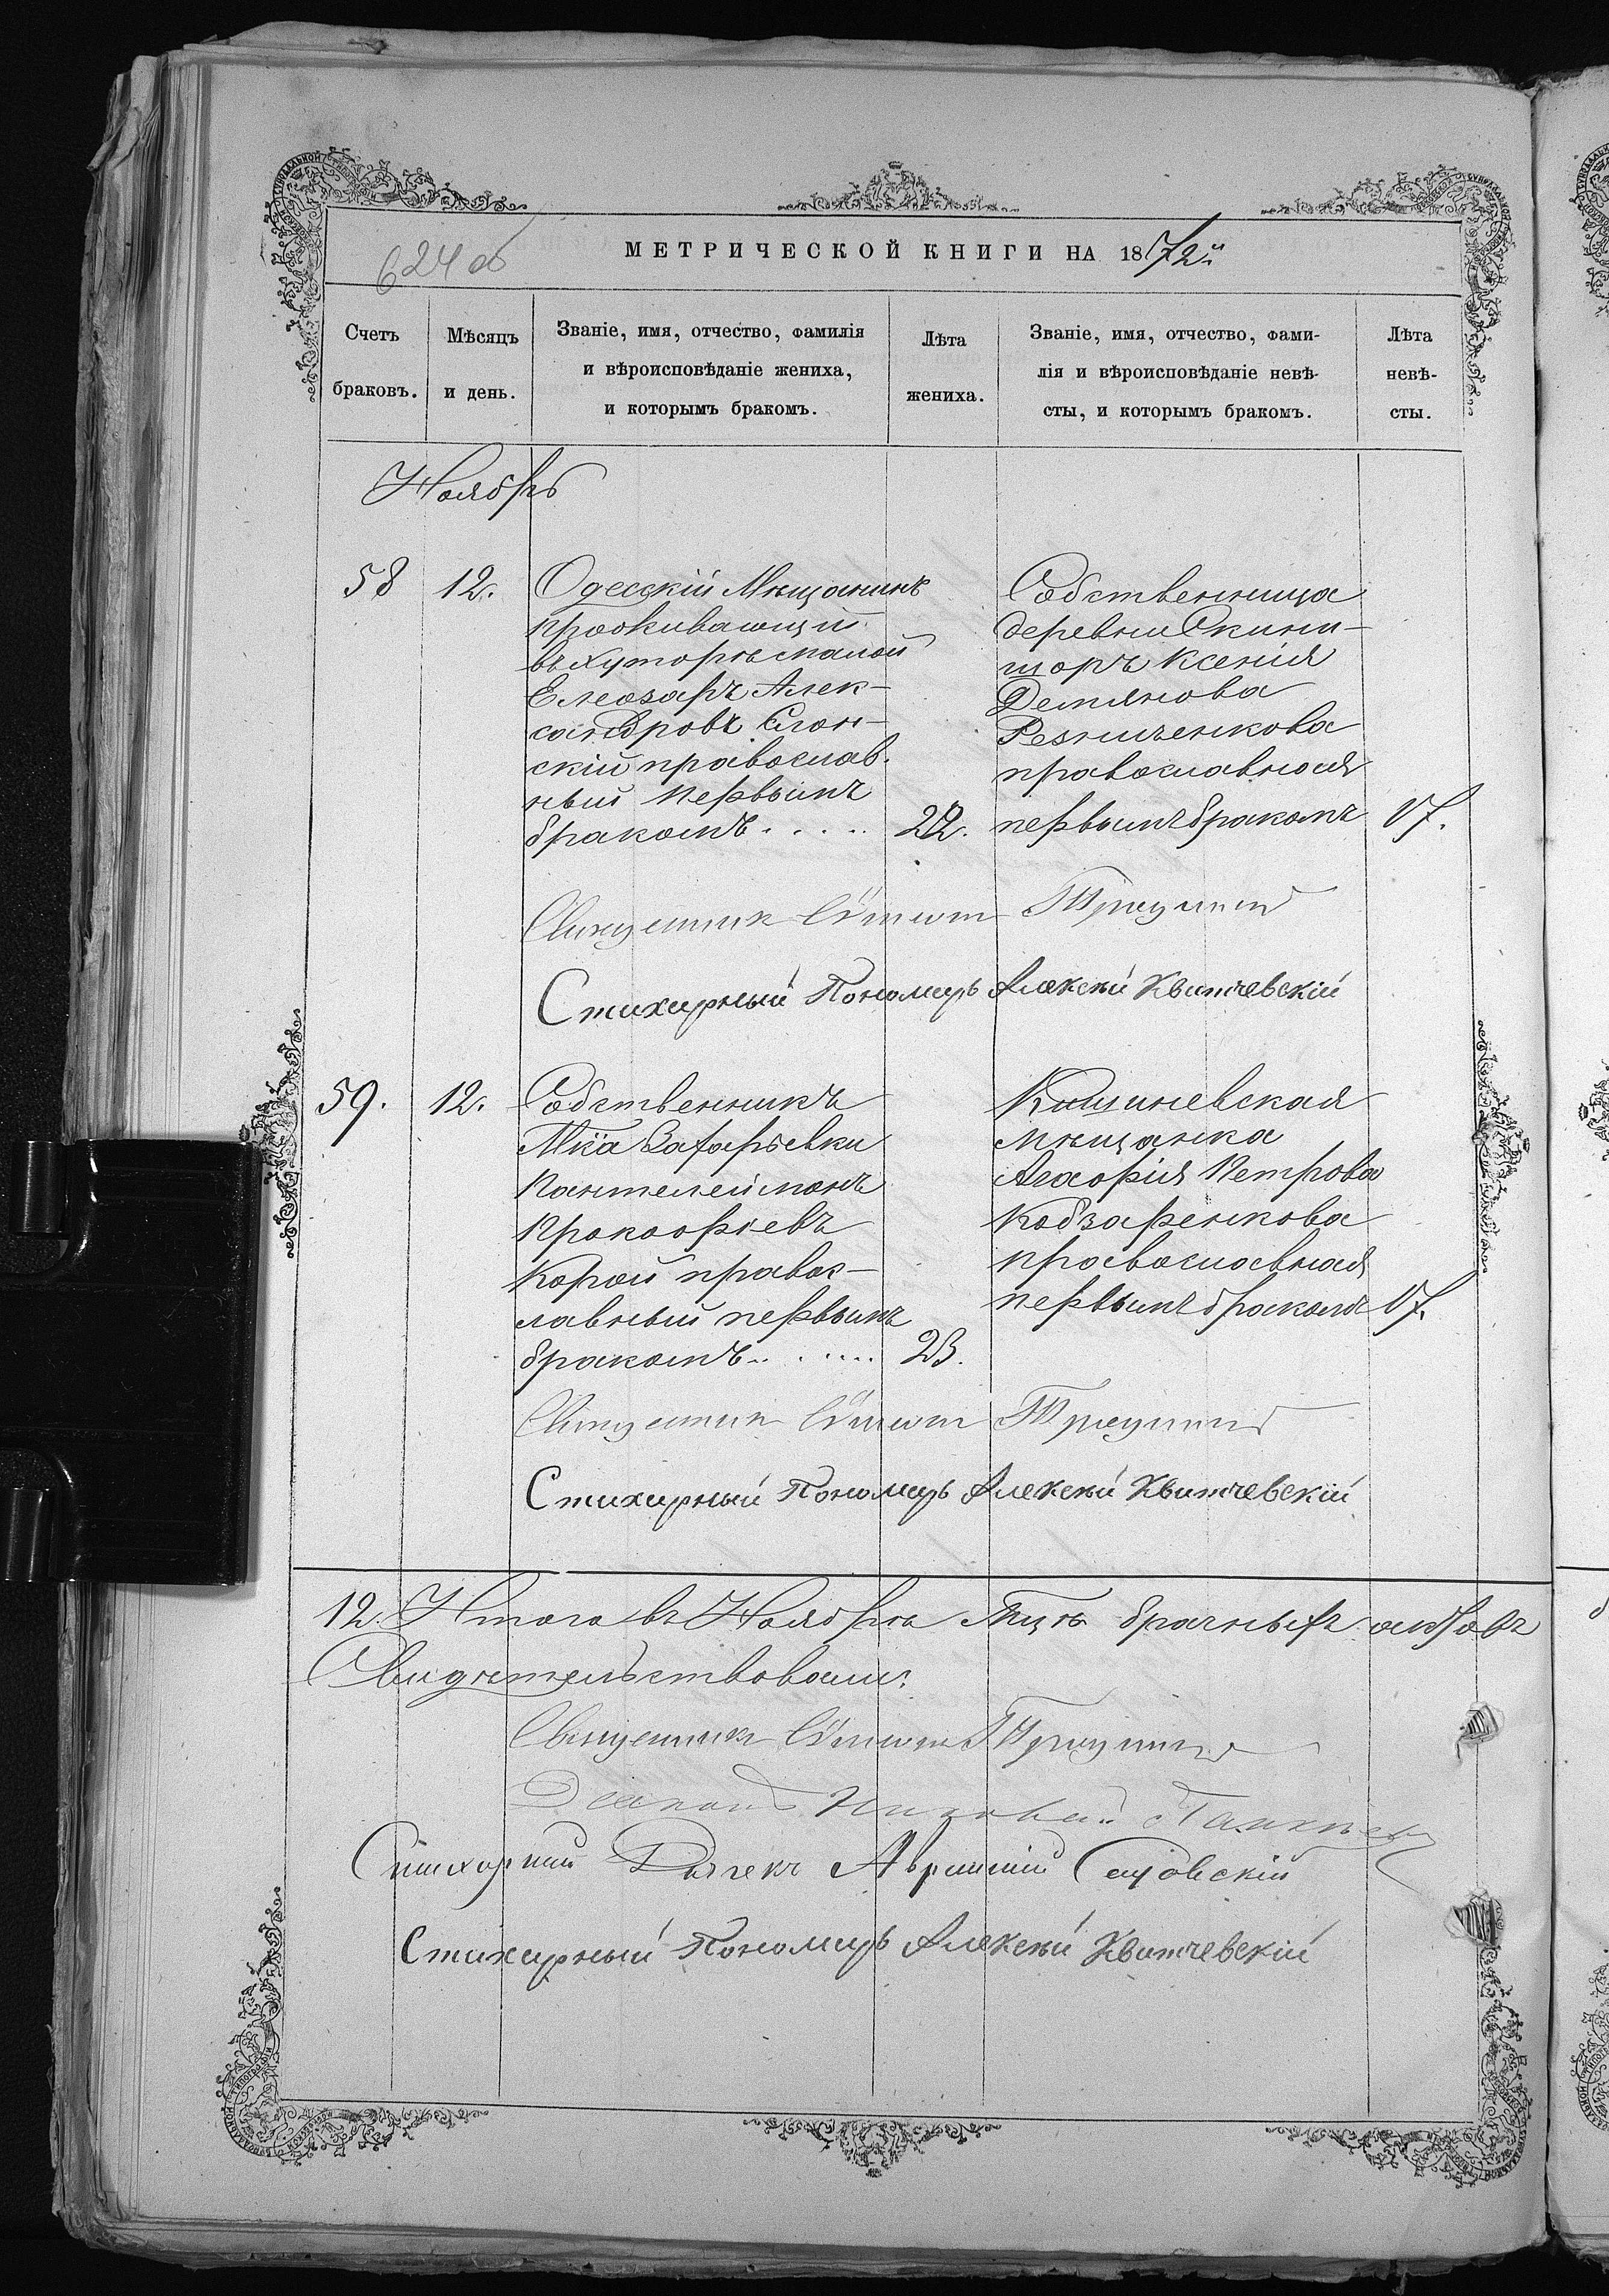 624 об
МЕТРИЧЕСКОЙ КНИГИ НА 1872й
Счетъ браковъ.
Мѣсяцъ и день.
Званіе, имя, отчество, фамилія
и вѣроисповѣданіе жениха,
и которымъ бракомъ.
Лѣта жениха.
Званіе, имя, отчество, фами-
лія и вѣроисповѣданіе невѣ-
сты, и которымъ бракомъ.
Лѣта невѣ-
сты.
Ноябрь
58 12.
Одесскій Мѣщанинъ
проживающій
въ хуторѣ малой
Елеозаръ Алек-
сандровъ Слон-
скій православ-
ный первымъ
бракомъ..... 22.
Собственница
деревни Скини-
шоръ Ксенія
Демянова
Резниченкова
православная
первымъ бракомъ 17.
Священник
Стихирный Пономарь Алексѣй Квитчевскій
59. 12.
Собственникъ
Мка Захарьевки
Пантелеймонъ
Прокофіевъ
Корой правос-
лавный первымъ
бракомъ...... 23.
Кишиневская
мѣщанка
Агафія Петрова
Кобзаренкова
православная
первымъ бракомъ 17.
Священник
Стихирный Пономарь Алексѣй Квитчевскій
12. Итого въ Ноябрѣ Мцѣ брачныхъ актовъ
Свидѣтельствовали:
Священникъ
Діаконъ
Стихарный Дьячекъ
Стихирный Пономарь Алексѣй Квитчевскій